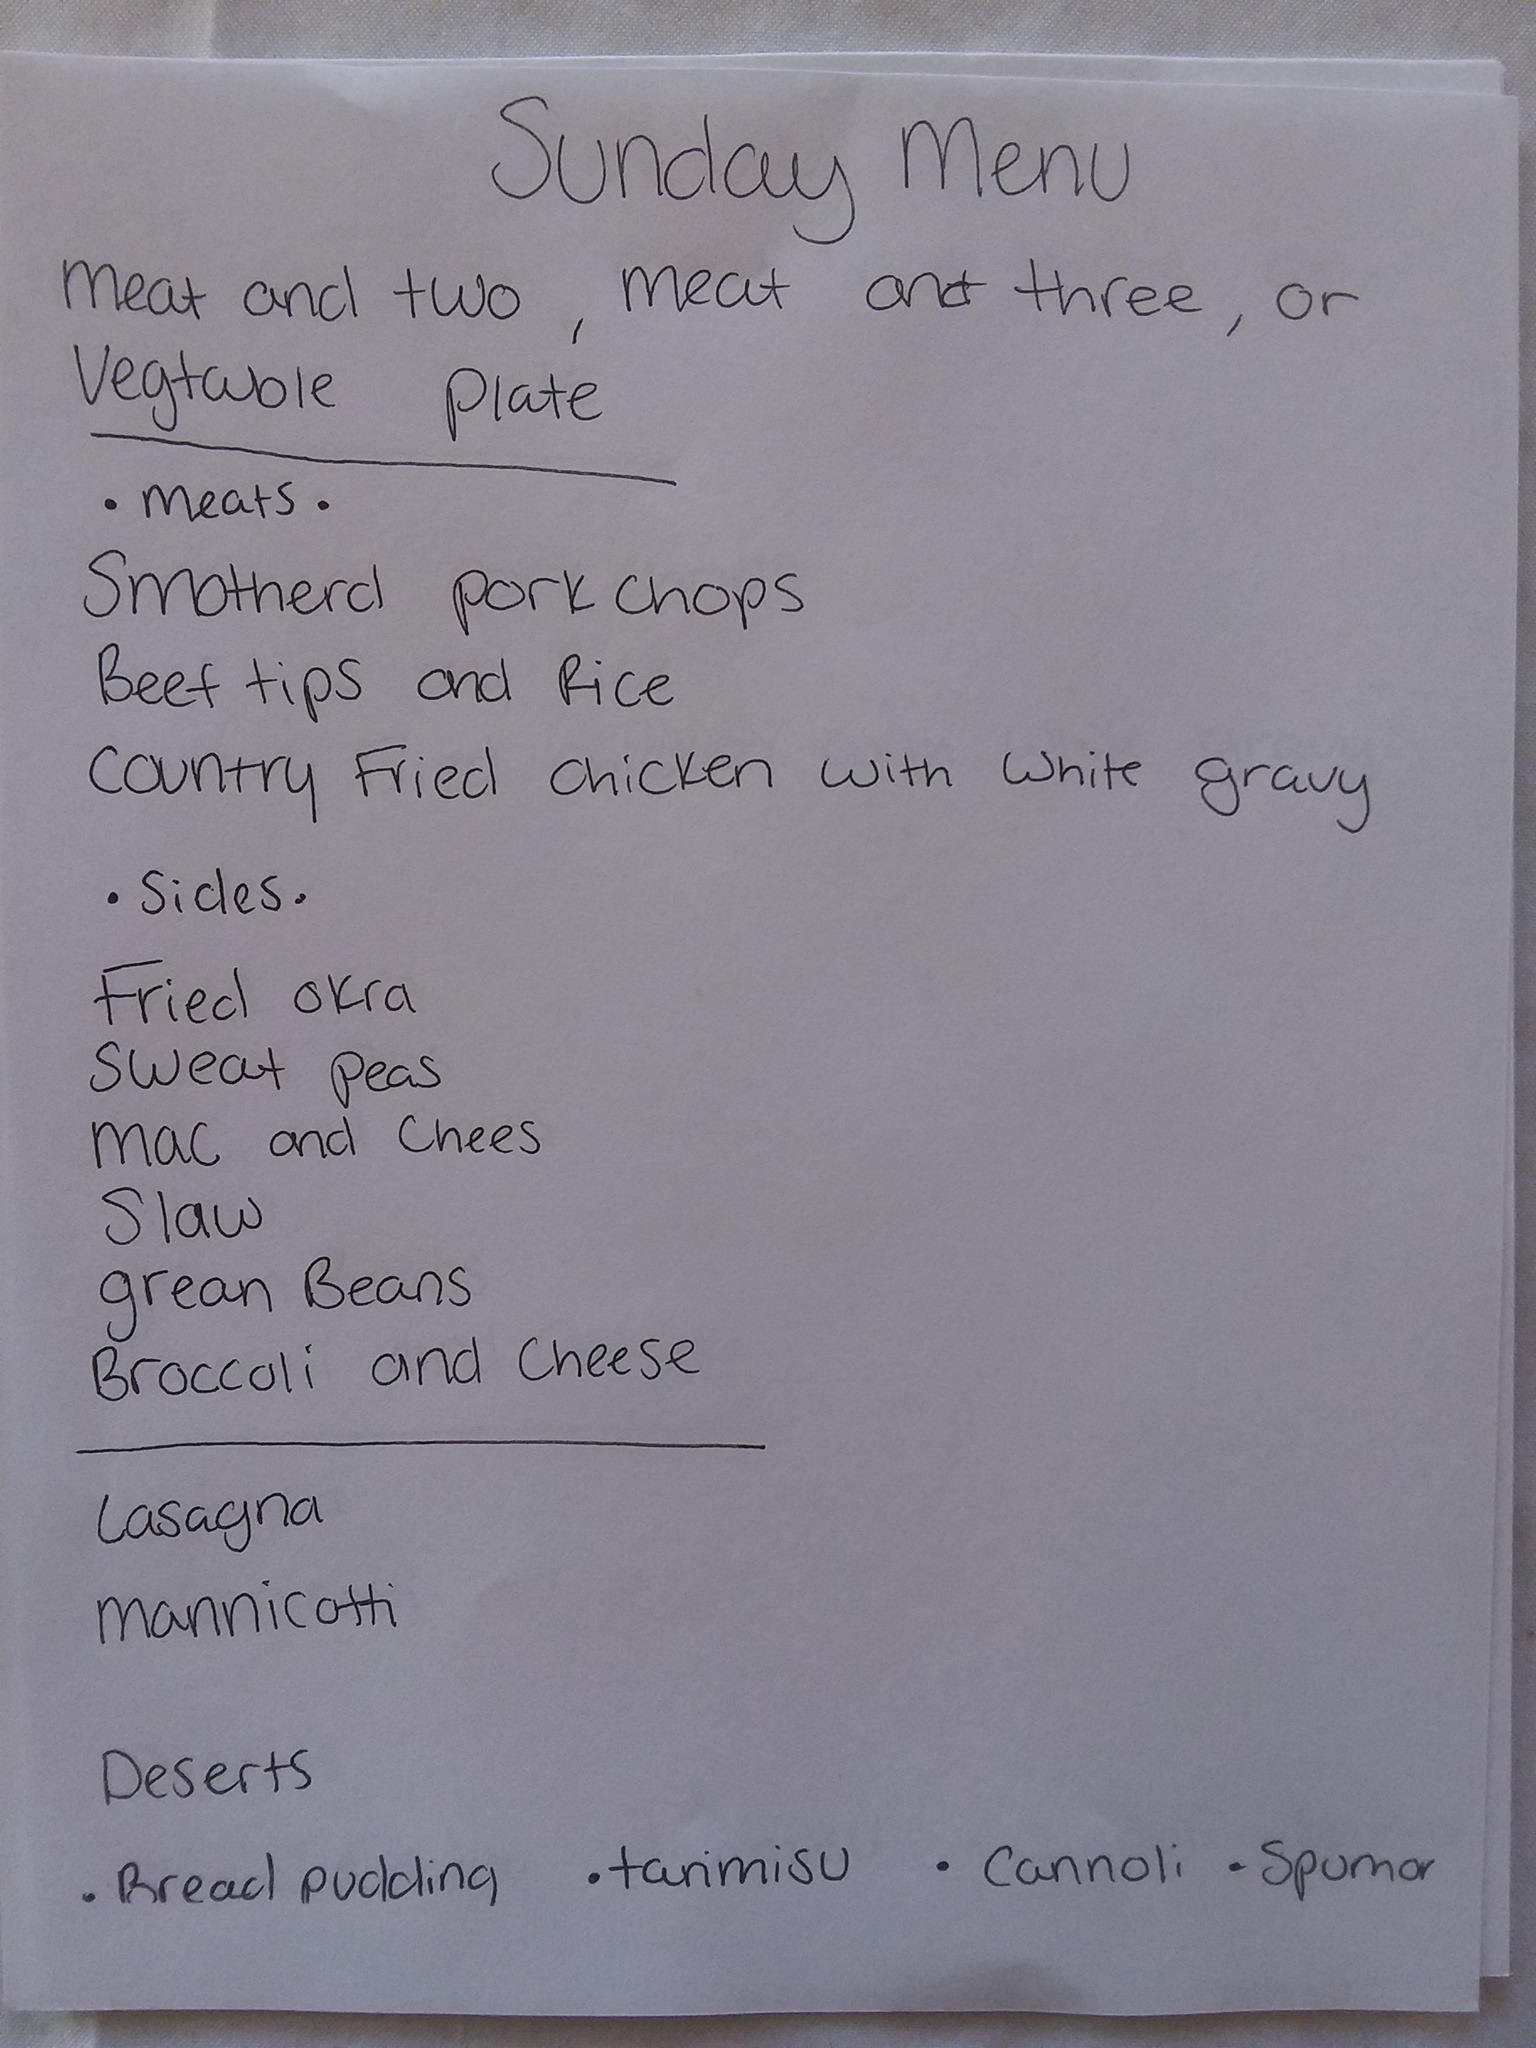 Sunday Menu
Meat and two, meat and three, or
Vegtable plate
• Meats •
Smotherd pork chops
Beef tips and Rice
Country Fried chicken with white gravy
• Sides •
Fried okra
Sweat peas
Mac and Chees
Slaw
grean Beans
Broccoli and Cheese
Lasagna
Mannicotti
Deserts
• Bread pudding • tarimisu • Cannoli • Spumor